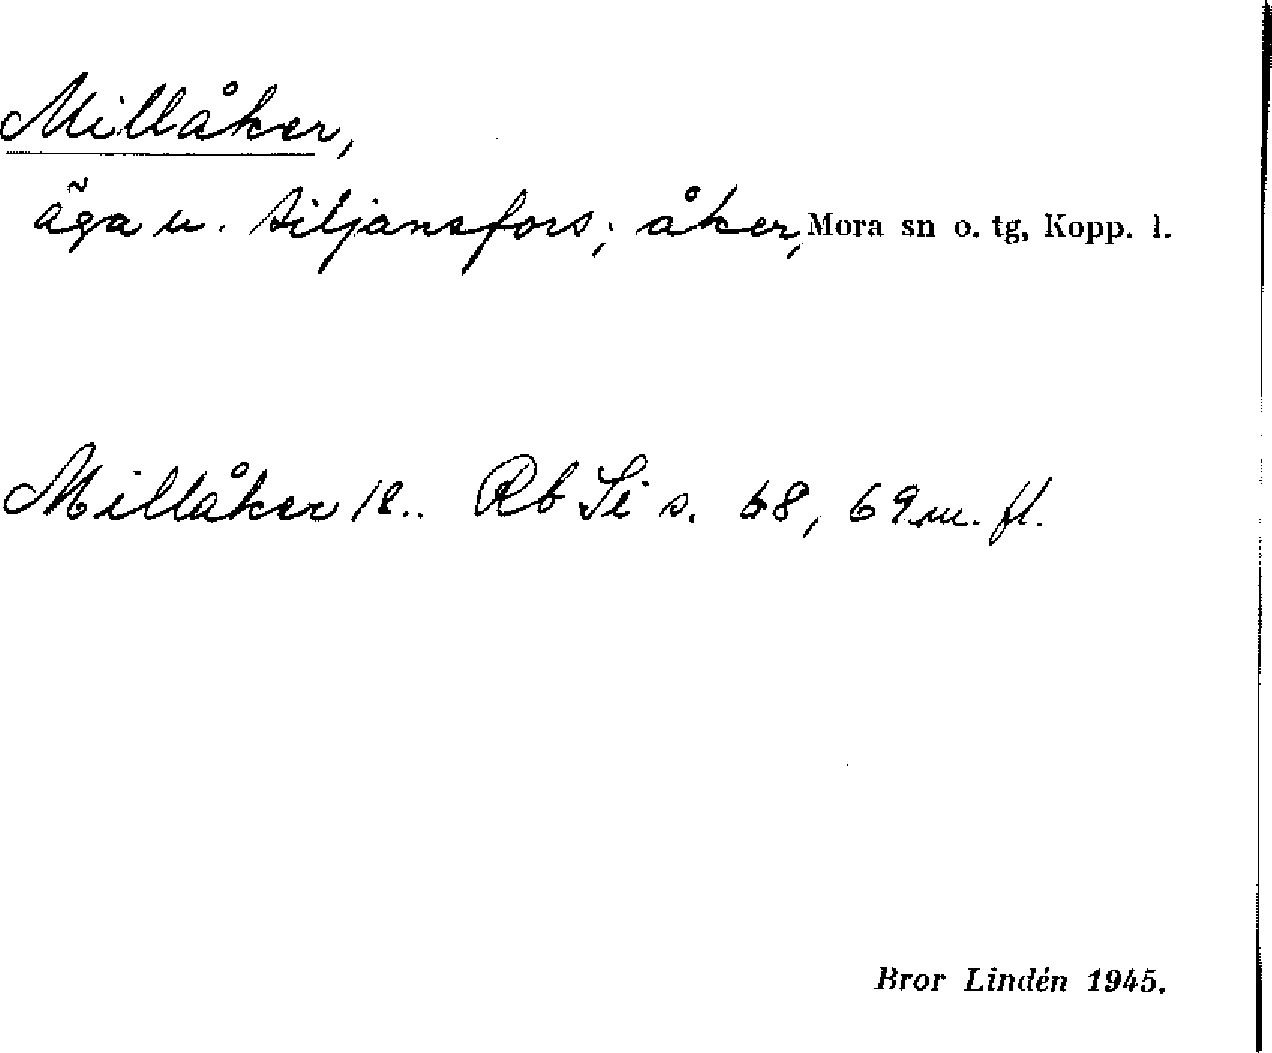 Millåker,
äga u. Siljansfors; åker, Mora sn o. tg, Kopp. l.
Millåker 18.. Rb Si s. 68, 69 m. fl.
Bror Lindén 1945.